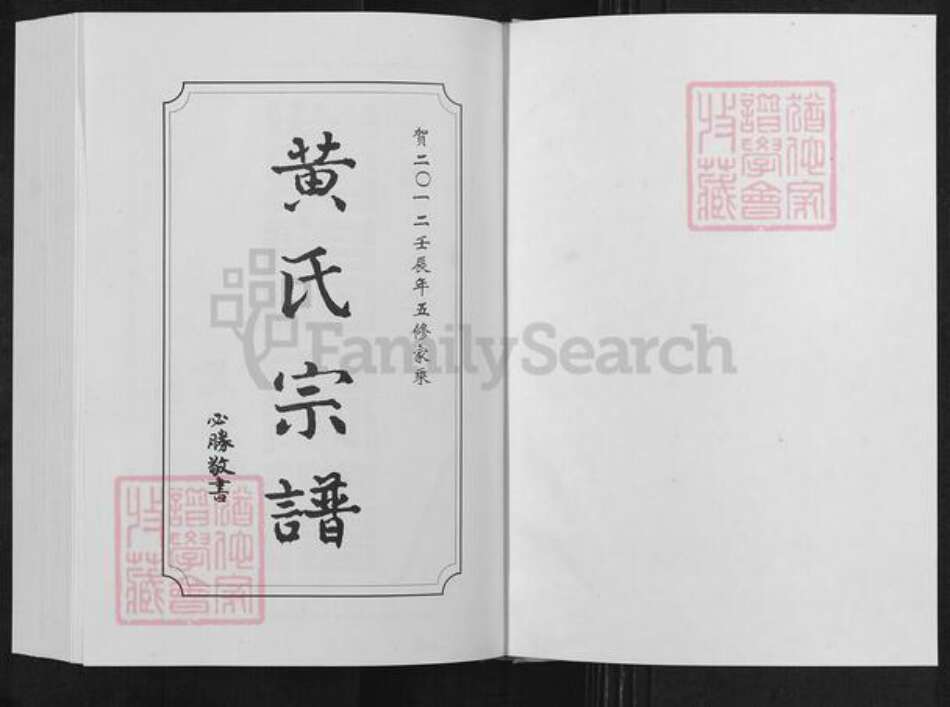 賀二〇一二壬辰年五修家乘
黄氏宗譜
必勝敬書
猶他家
譜學會
收藏
猶他家
譜學會
收藏
FamilySearch